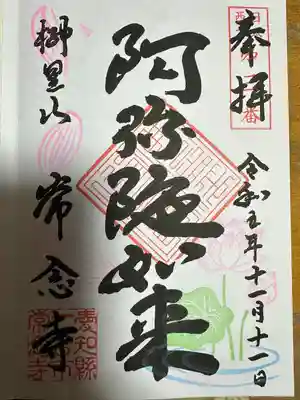 奉拝
令和五年十一月十一日
阿弥陀如来
常念寺
愛知縣
常念寺